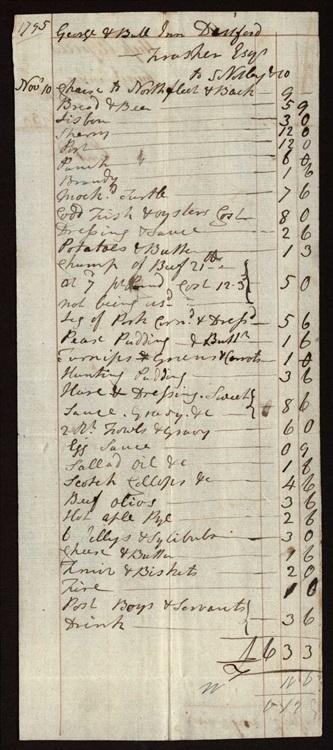 1795
George & Bull Inn Dartford
Thrasher Esqr
to S & Co
Novr 10
Chaise to Northfleet & Back 9
Bread & Beer 5 9
Lisbon 3 0
Sherry 12 0
Port 12 0
Punch 6 0
Brandy 1 6
Mock'd Turtle 7 6
Codd Fish & oysters Cost 8 0
Dressing & Sauce 2 6
Potatoes & Butter 1 3
Chump of Beef 21 lb
at 7 pr Pound Cost 12.3 5 0
not being usd
Leg of Pork Corn'd & Dress'd 5 6
Pease Pudding & Buttr 1 6
Turnips & Greens & Carrots 1 0
Hunting Pudding 3 6
Hare & Dressing. Sweet
Sauce. Gravy. &c 8 6
2 Rt Fowls & Gravy 6 0
Egg Sauce 0 9
Sallad oil &c 1 6
Scotch Collops &c 4 6
Beef olives 3 6
Hot aple Pye 2 6
6 Jellys & Sylibubs 3 0
Cheese & Butter 1 6
Fruit & Biskets 2 0
Fire 1 0
Post Boys & Servants
Drink 3 6
£ 6 3 3